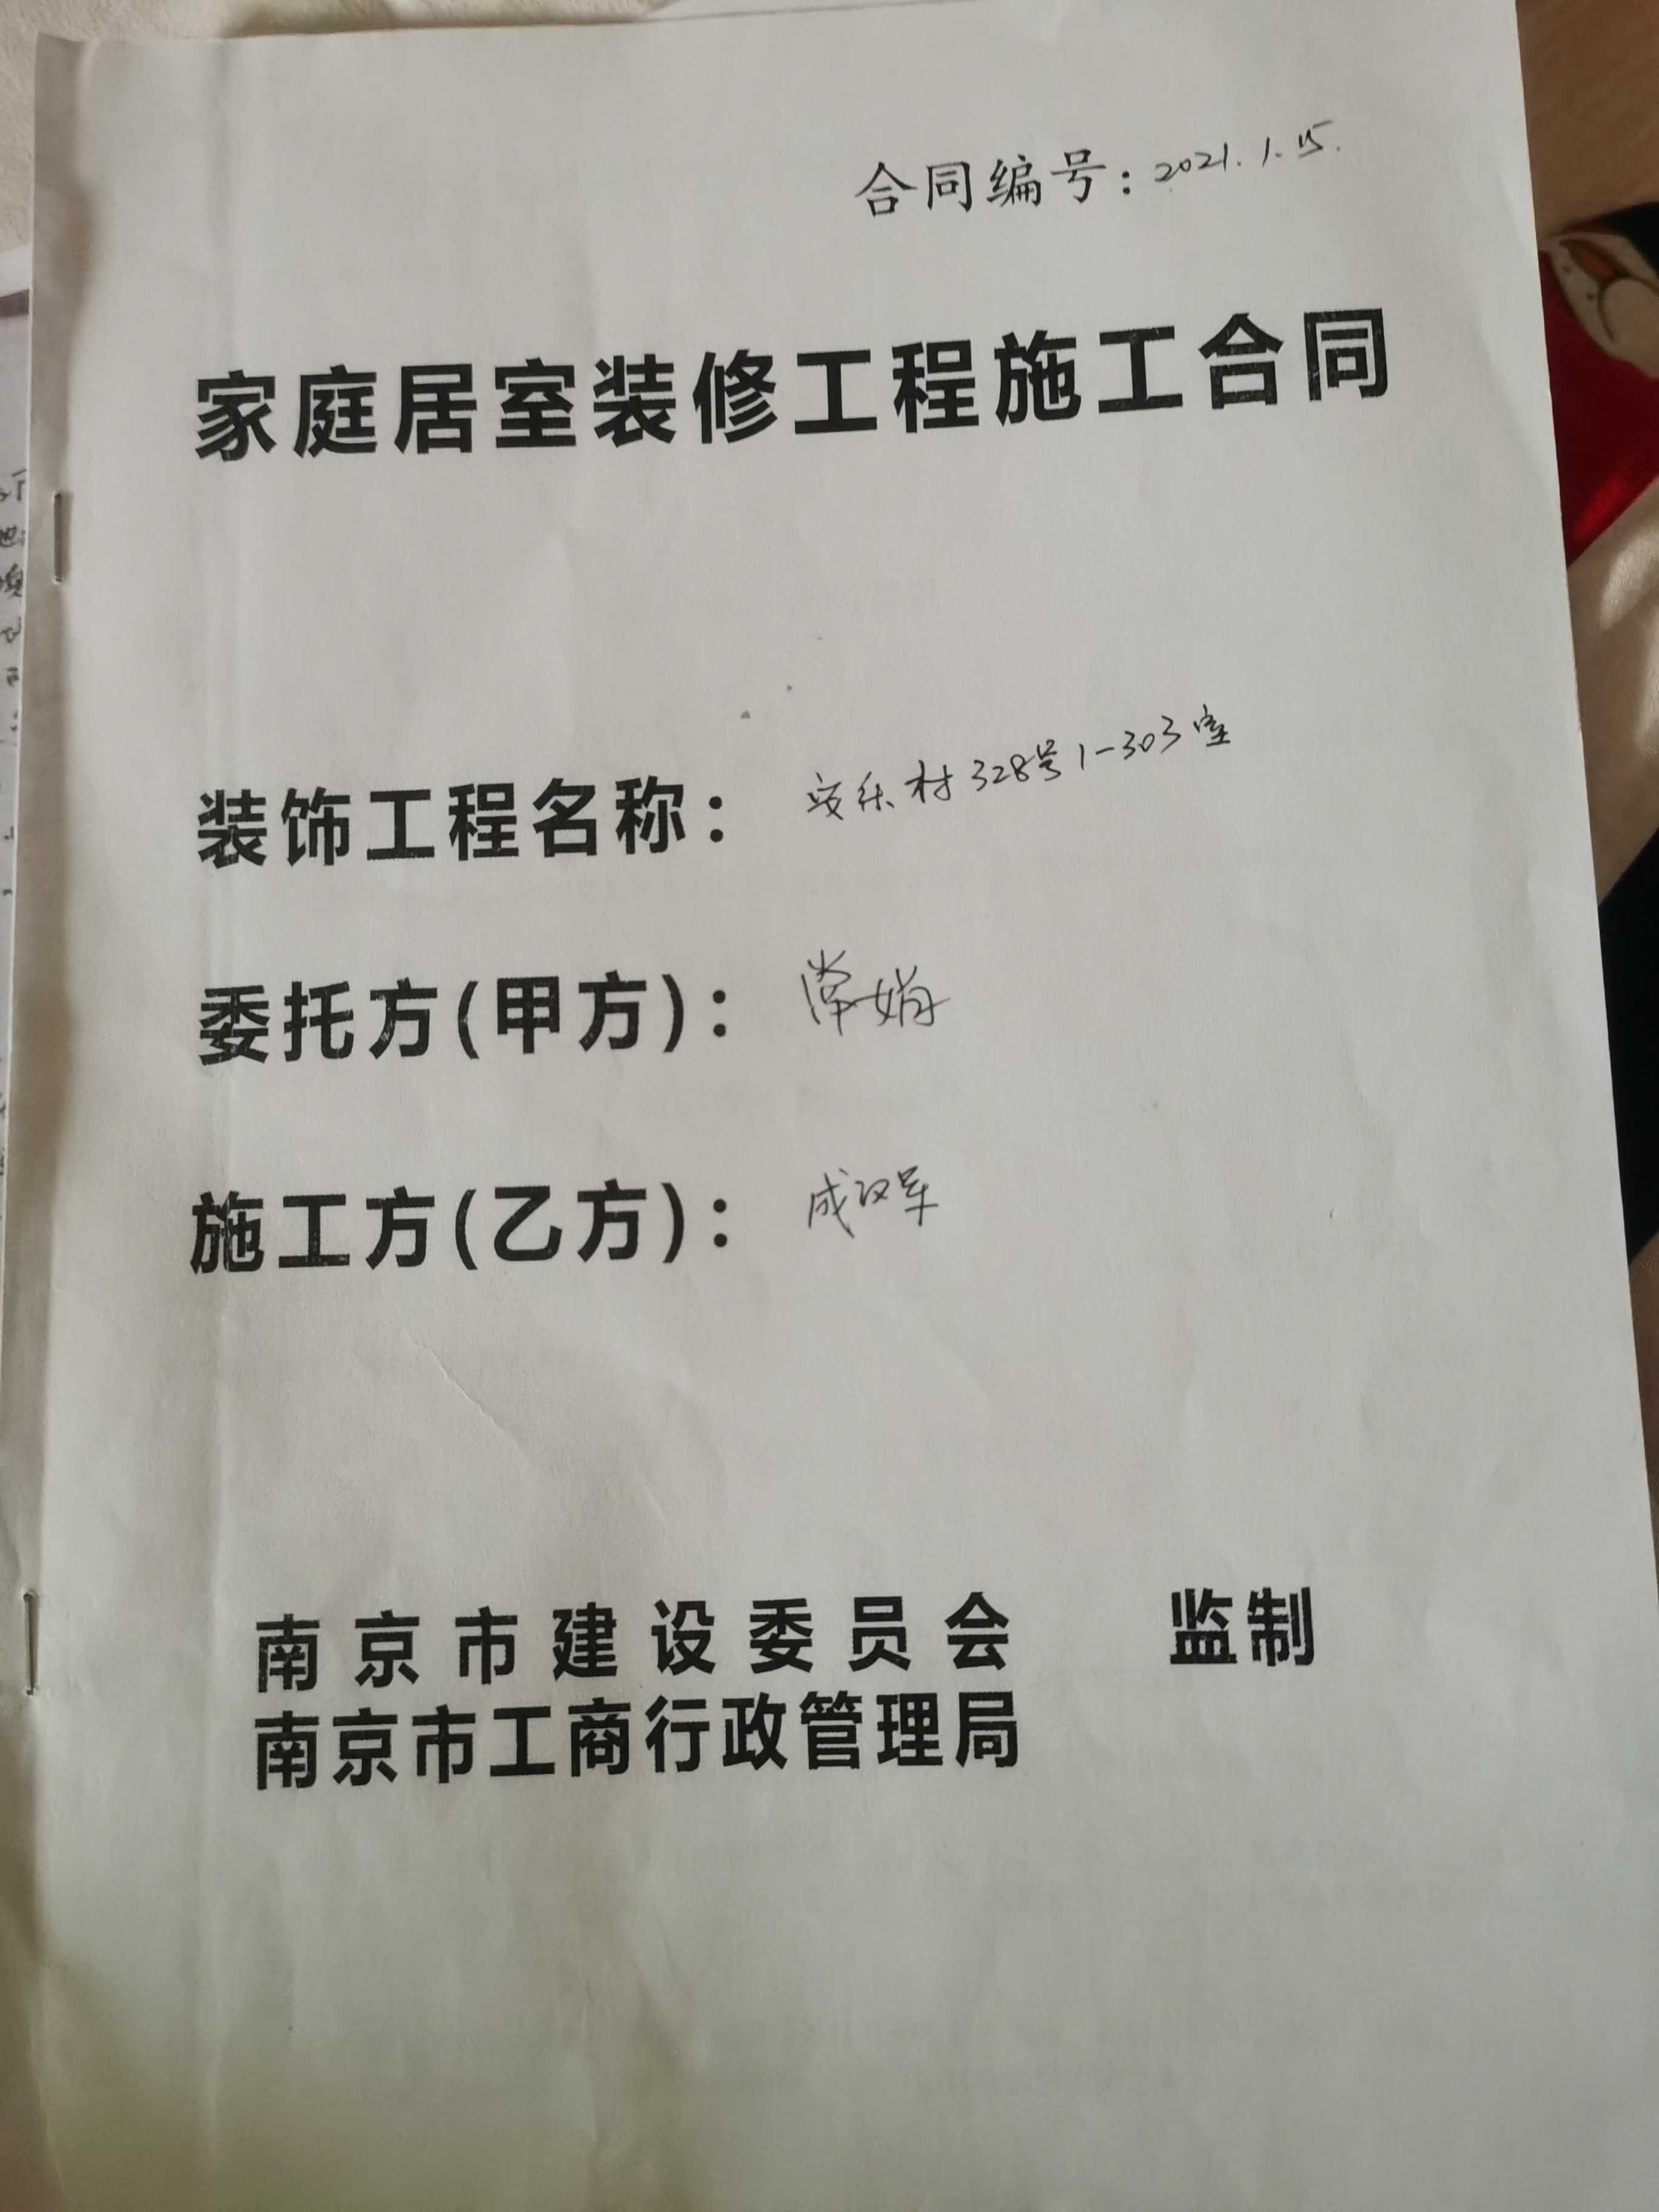 合同编号：2021.1.15.
家庭居室装修工程施工合同
装饰工程名称：安乐村328号1-303室
委托方(甲方)：常娟
施工方(乙方)：成汉军
南京市建设委员会 监制
南京市工商行政管理局